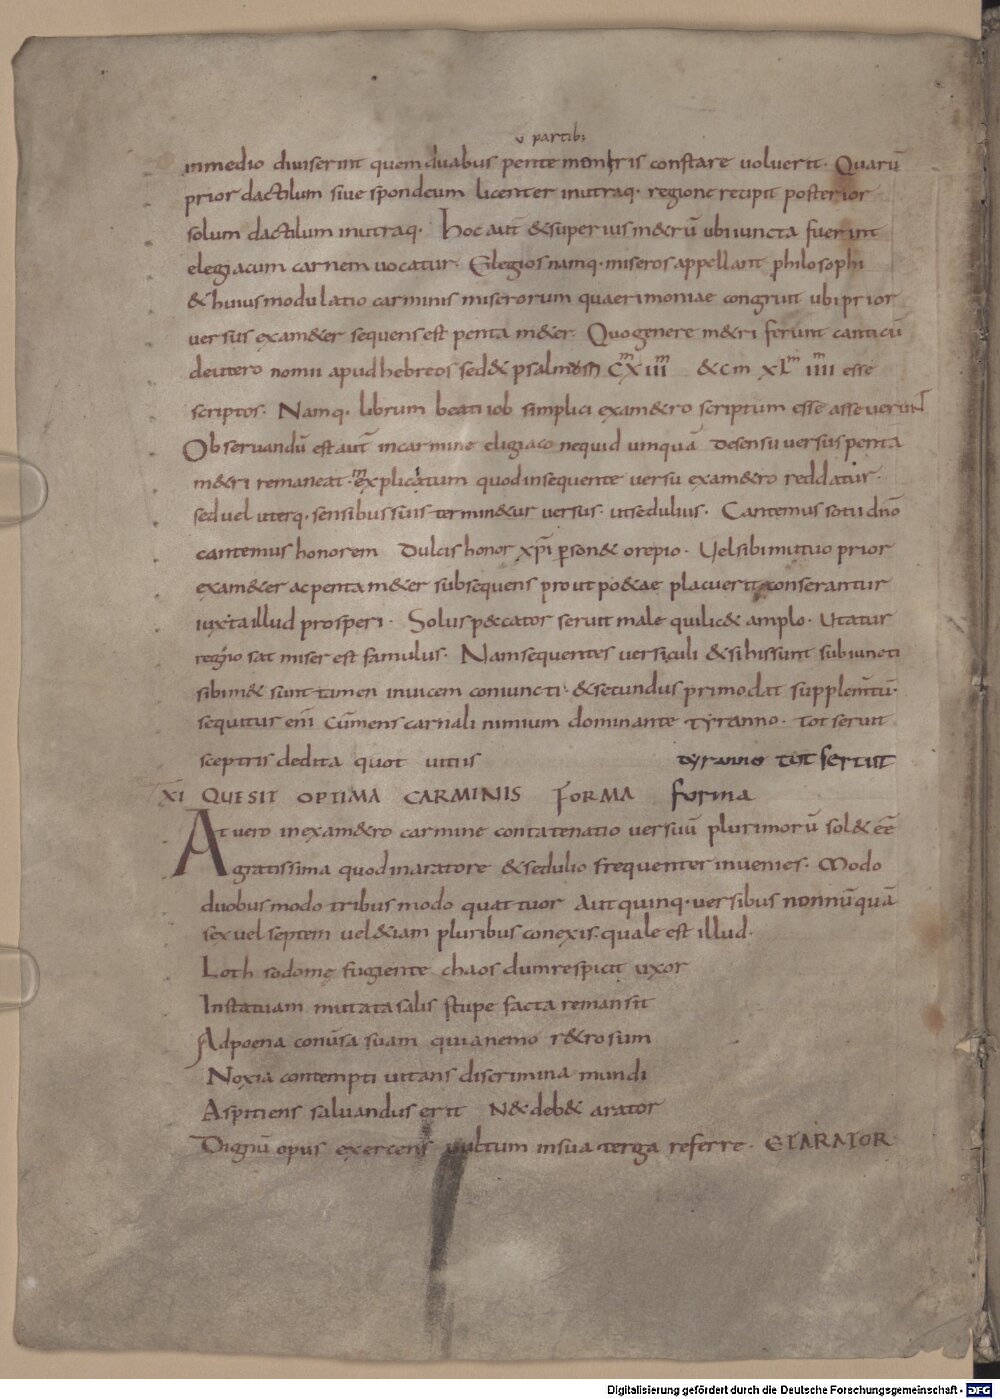 v partib;
inmedio diuiserint quem duabus pente memtris constare uoluerit. Quarū
prior dactilum siue spondeum licenter inutraq. regione recipit posterior
solum dactilum inutraq. hoc aut̄ & superius m&rū ubi iuncta fuerint
elegiacum carnem uocatur. Elegios namq. miseros appellant philosophi
& huius modulatio carminis miserorum quaerimoniae congruit ubi prior
uersus exam&er sequens est penta m&er. Quo genere m&ri ferunt canticū
deutero nomii apud hebreos sed & psalmos CXIII & cm XLIIII esse
scriptos. Namq. librum beati iob simplici exam&ro scriptum esse asseuerant
Obseruandū est aut̄ in carmine eligiaco nequid umquā desensu uersus penta
m&ri remaneat inexplicatum quod insequente uersu exam&ro reddatur.
sed uel uterq. sensibus suis termin&ur uersus. ut sedulius. Cantemus socii dn̄o
cantemus honorem Dulcis honor xp̄i person& ore pio. Uel sibi mutuo prior
exam&er ac penta m&er subsequens prout po&ae placuerit conserantur
iuxta illud prosperi. Solus peccator seruit male qui lic& amplo. Utatur
regno sat miser est famulus. Nam sequentes uersiculi & si hi ssunt subiuncti
sibim& sunt tamen inuicem coniuncti. & secundus primo dat supplem̄tū.
sequitur eni Cūmens carnali nimium dominante tyranno. Tot seruit
sceptris dedita quot uitiis tyranno tot seruit
XI QUE SIT OPTIMA CARMINIS FORMA forma
At uero in exam&ro carmine concatenatio uersuū plurimorū sol& eē
gratissima quod in aratore & sedulio frequenter inuenies. Modo
duobus modo tribus modo quattuor aut quinq. uersibus nonnūquā
sex uel septem uel &iam pluribus conexis. quale est illud.
Loth sodomę fugiente chaos dum respicit uxor
In statuam mutata salis stupe facta remansit
Ad poena conūsa suam quia nemo r&rosum
Noxia contempti uitans discrimina mundi
Aspitiens saluandus erit N& deb& arator
Dignū opus exercens uultum in sua terga referre. ET ARATOR
Digitalisierung gefördert durch die Deutsche Forschungsgemeinschaft - DFG